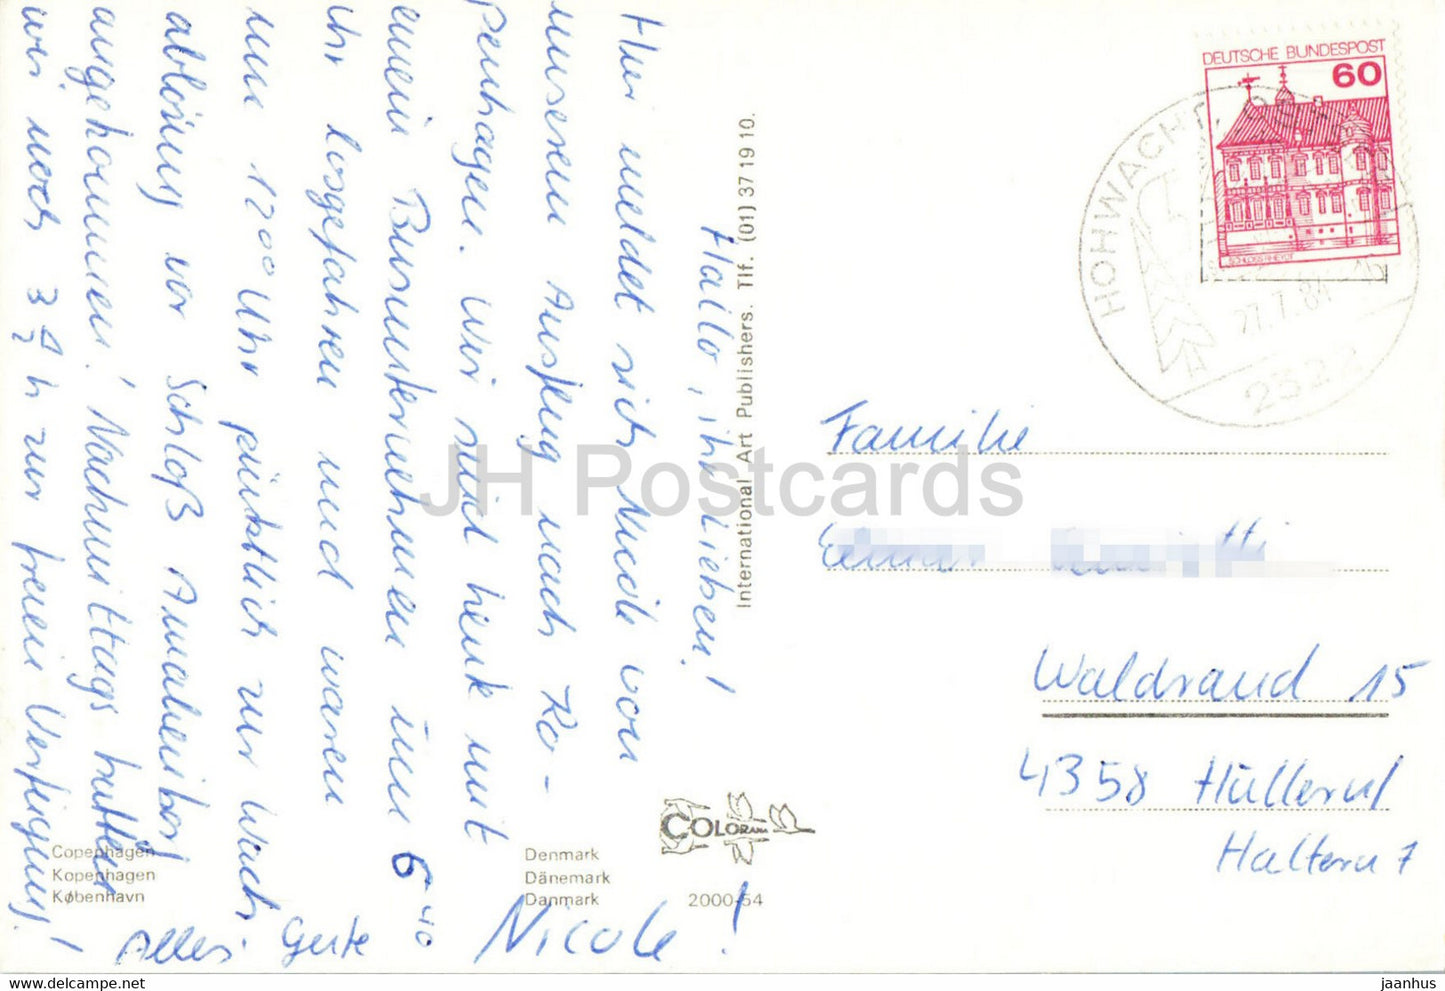 Hallo, ihr Lieben!
Hier meldet sich Nicole von
unserem Ausflug nach Ko-
penhagen. Wir sind heute mit
einem Busunternehmen um 6⁴⁰
Uhr losgefahren und waren
um 12⁰⁰ Uhr pünktlich zur Wach
ablösung vor Schloß Amalienborg
angekommen! Nachmittags hatten
wir noch 3 h zur freien Verfügung!
Alles Gute Nicole!
Copenhagen
Kopenhagen
København
Denmark
Dänemark
Danmark
2000-54
COLORAMA
International Art Publishers. Tlf. (01) 37 19 10.
DEUTSCHE BUNDESPOST
60
SCHLOSS RHEYDT
HOHWACHT, OSTSEE
27.7.81-16
2322
Familie
Waldrand 15
4358 Hüllern
Haltern 7
JH Postcards
https://www.delcampe.net
jaanhus